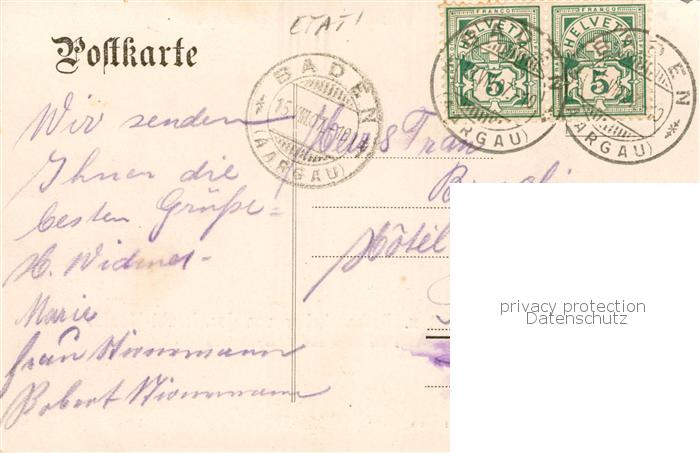 ETAT!
Postkarte
FRANCO FRANCO
HELVETIA HELVETIA
5 5
BADEN
15. VIII. 07
(AARGAU)
BADEN
(AARGAU)
BADEN
(AARGAU)
Wir senden
Ihnen die
besten Grüße!
H. Widmer
Marie
Frau
Robert
Herr & Frau
Hôtel
privacy protection
Datenschutz